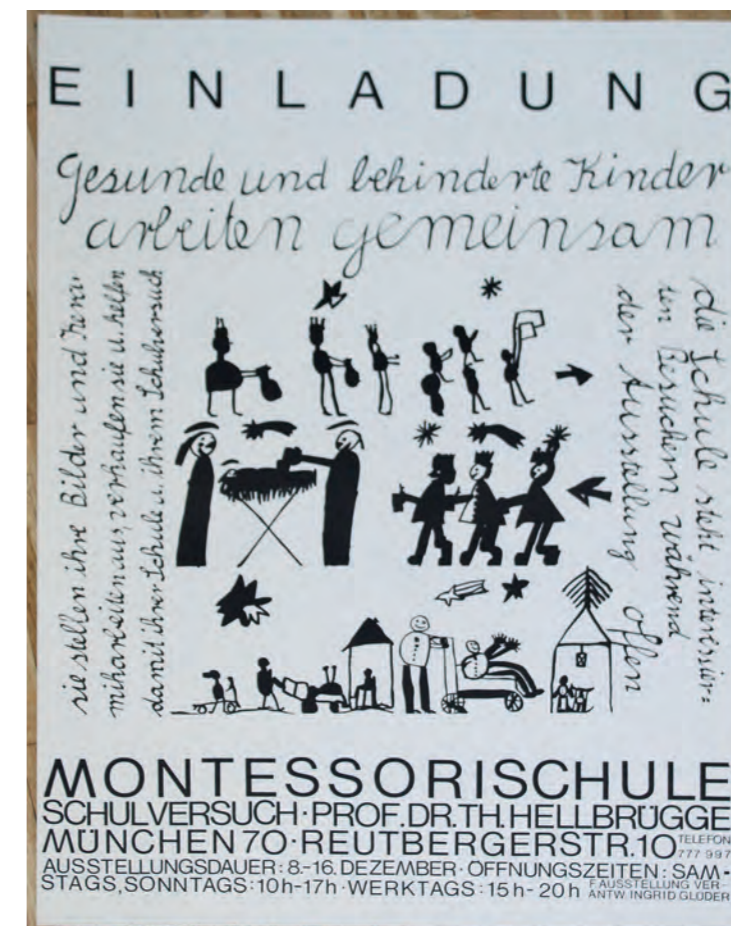 EINLADUNG
Gesunde und behinderte Kinder
arbeiten gemeinsam
sie stellen ihre Bilder und Kera-
mikarbeiten aus, verkaufen sie u. helfen
damit ihrer Schule u. ihrem Schulversuch
die Schule steht interessier=
ten Besuchern während
der Ausstellung offen
MONTESSORISCHULE
SCHULVERSUCH·PROF.DR.TH.HELLBRÜGGE
MÜNCHEN 70·REUTBERGERSTR.10 TELEFON
777 997
AUSSTELLUNGSDAUER: 8.-16. DEZEMBER · ÖFFNUNGSZEITEN: SAM-
STAGS, SONNTAGS: 10h-17h · WERKTAGS: 15h-20h F. AUSSTELLUNG VER-
ANTW. INGRID GLÜDER